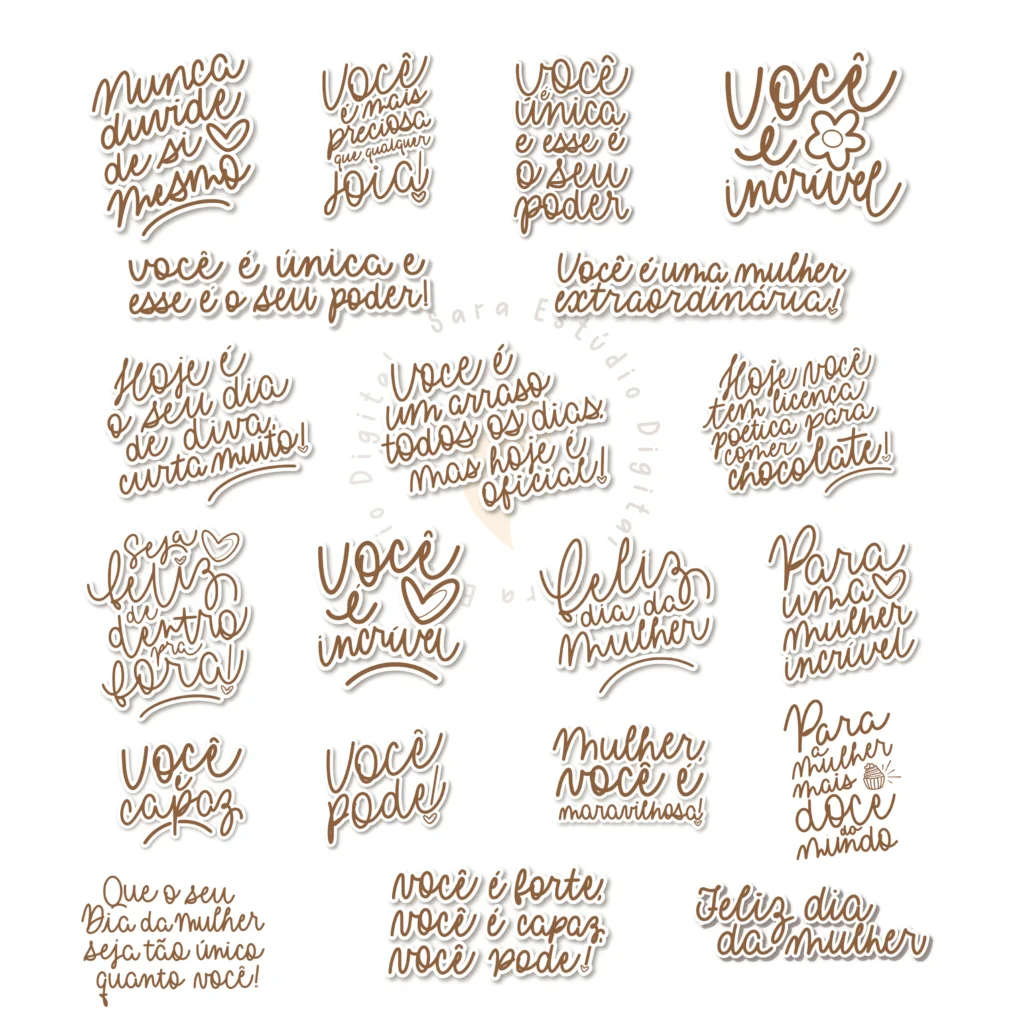 Nunca
duvide
de si
mesmo
Você
é mais
preciosa
que qualquer
joia!
você
é
única
e esse é
o seu
poder
Você
é
incrível
você é única e
esse é o seu poder!
Você é uma mulher
extraordinária!
Sara Estúdio Digital
Hoje é
o seu dia
de diva,
curta muito!
Você é
um arraso
todos os dias,
mas hoje é
oficial!
Hoje você
tem licença
poética para
comer
chocolate!
Seja
feliz
de
dentro
pra
fora!
Você
é
incrível
feliz
dia da
Mulher
Para
uma
mulher
incrível
Você
é
capaz
Você
pode!
Mulher,
você é
maravilhosa!
Para
a
mulher
mais
doce
do
mundo
Que o seu
Dia da mulher
seja tão único
quanto você!
Você é forte,
você é capaz,
você pode!
Feliz dia
da mulher